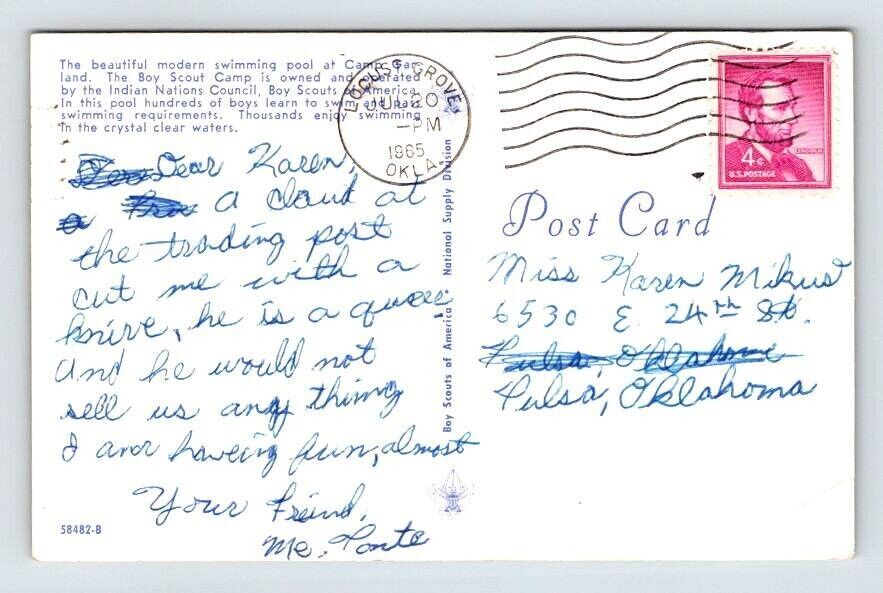 The beautiful modern swimming pool at Camp Gar-
land. The Boy Scout Camp is owned and operated
by the Indian Nations Council, Boy Scouts of America.
In this pool hundreds of boys learn to swim and pass
swimming requirements. Thousands enjoy swimming
in the crystal clear waters.
LOCUST GROVE
JUL 20
-PM
1965
OKLA.
LINCOLN
4¢
U.S. POSTAGE
Dear Karen,
a cloud at
the trading post
cut me with a
knive, he is a
and he would not
sell us any thinng
I am haveing fun, almost
Your Freind,
Me.
Boy Scouts of America • National Supply Division
Post Card
Miss Karen Mikus
6530 E. 24th St.
Tulsa, Oklahoma
Tulsa, Oklahoma
58482-B